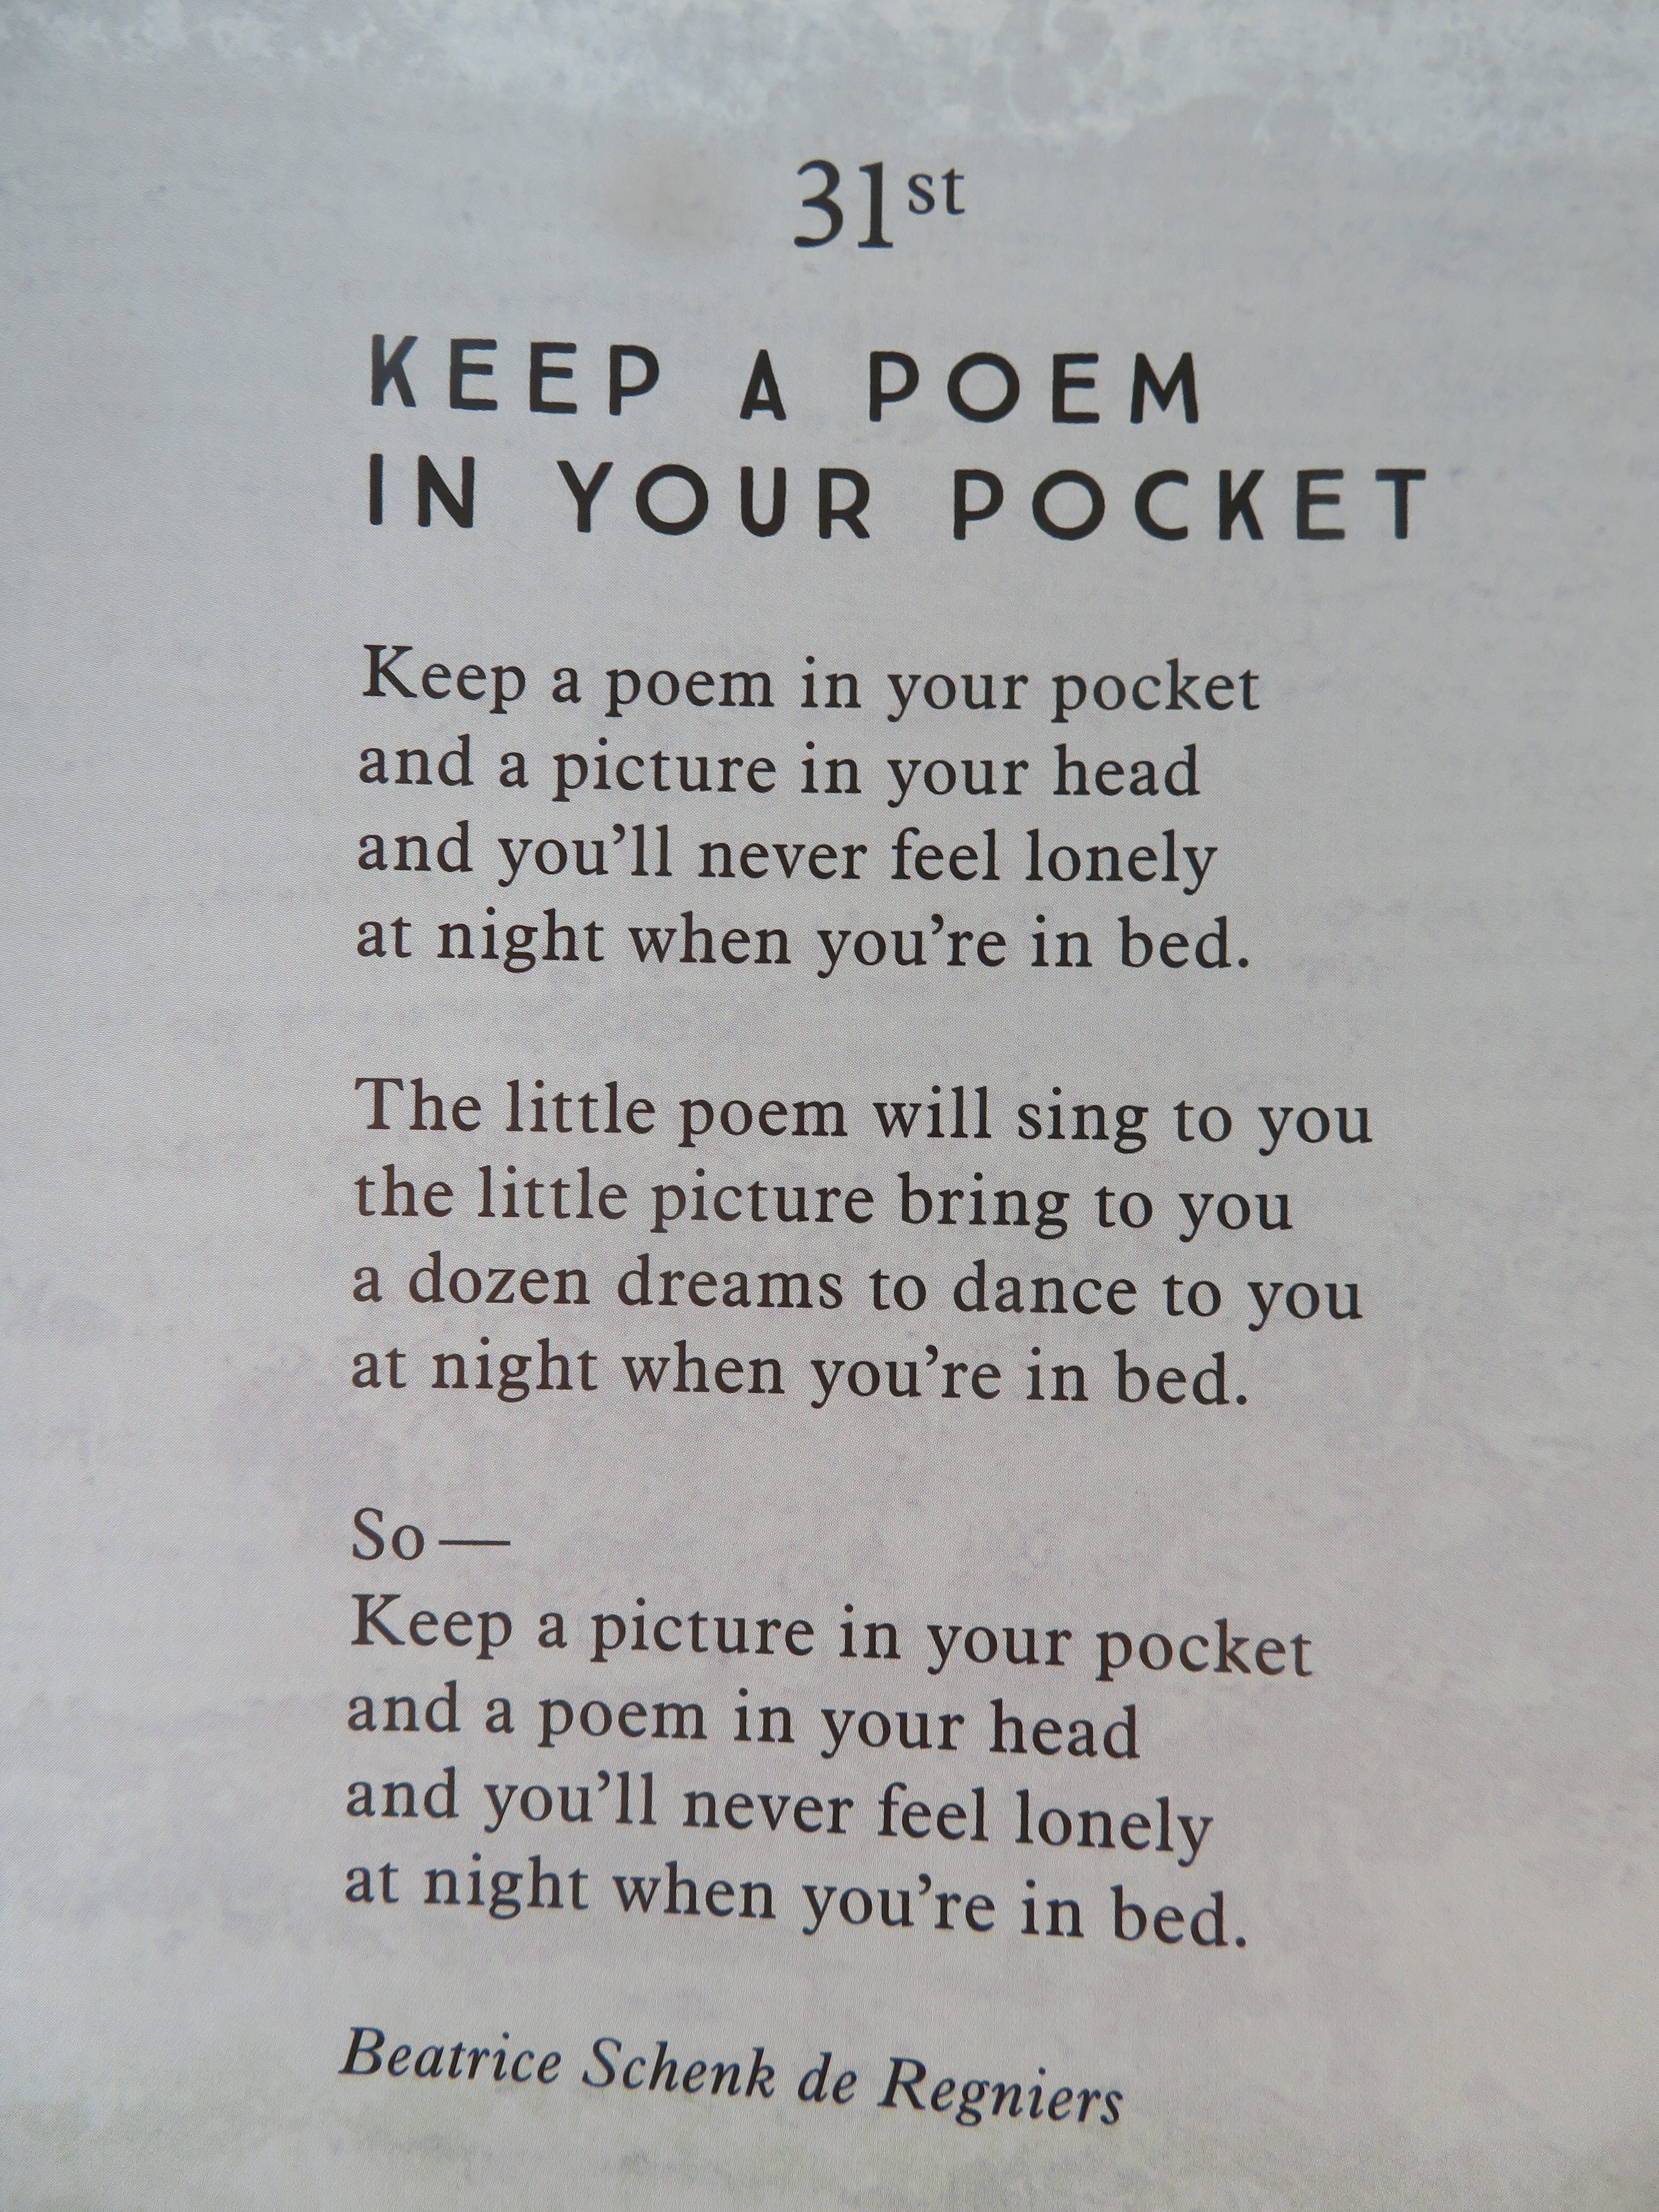 31st
KEEP A POEM
IN YOUR POCKET
Keep a poem in your pocket
and a picture in your head
and you’ll never feel lonely
at night when you’re in bed.
The little poem will sing to you
the little picture bring to you
a dozen dreams to dance to you
at night when you’re in bed.
So—
Keep a picture in your pocket
and a poem in your head
and you’ll never feel lonely
at night when you’re in bed.
Beatrice Schenk de Regniers